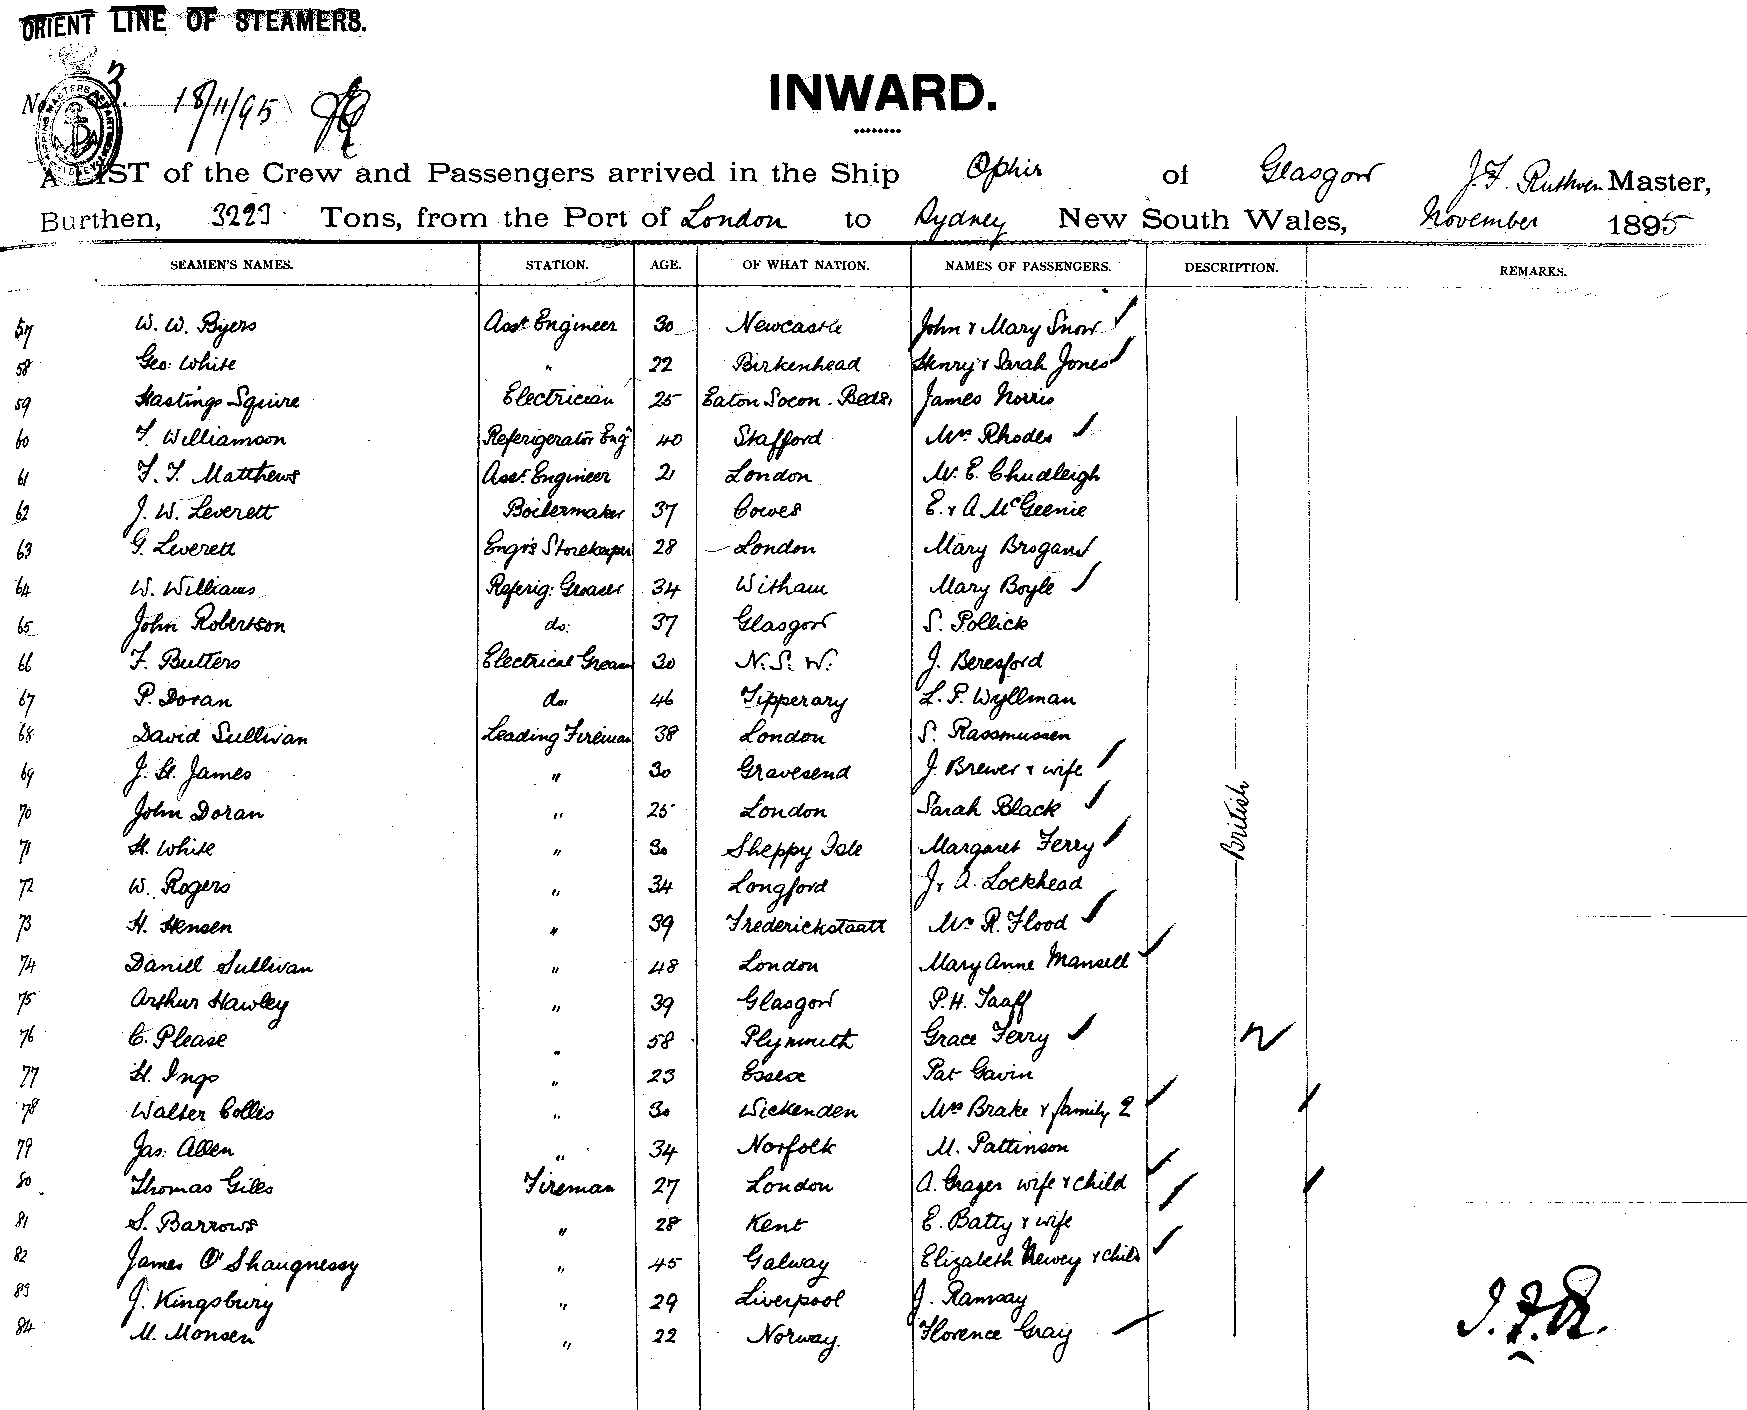 ORIENT LINE OF STEAMERS.
No 3. 18/11/95
INWARD.
A LIST of the Crew and Passengers arrived in the Ship Ophir of Glasgow J. F. Ruthven Master,
Burthen, 3223 Tons, from the Port of London to Sydney New South Wales, November 1895
SEAMEN'S NAMES. STATION. AGE. OF WHAT NATION. NAMES OF PASSENGERS. DESCRIPTION. REMARKS.
57 W. W. Byers Asst Engineer 30 Newcastle John & Mary Snow
58 Geo: White " 22 Birkenhead Henry & Sarah Jones
59 Hastings Squire Electrician 25 Eaton Socon. Beds. James Norris
60 T. Williamson Referigerator Engr 40 Stafford Mrs Rhodes
61 F. F. Matthews Asst. Engineer 21 London W. E. Chudleigh
62 J. W. Leverett Boilermaker 37 Cowes E. & A. McGeenie
63 G. Leverett Engrs Storekeeper 28 London Mary Brogan
64 W. Williams Referig: Greaser 34 Witham Mary Boyle
65 John Robertson do: 37 Glasgow S. Pollick
66 F. Butters Electrical Greaser 30 N. S. W. J. Beresford
67 P. Doran do: 46 Tipperary L. P. Wyllman
68 David Sullivan Leading Fireman 38 London S. Rassmussen
69 J. H. James " 30 Gravesend J. Brewer & wife
70 John Doran " 25 London Sarah Black
71 H. White " 30 Sheppy Isle Margaret Ferry
72 W. Rogers " 34 Longford J & A. Lockhead
73 H. Hensen " 39 Frederickstaatt Mrs R. Flood
74 Daniel Sullivan " 48 London Mary Anne Mansell
75 Arthur Hawley " 39 Glasgow P. H. Taaff
76 C. Please " 58 Plymouth Grace Ferry
77 H. Ings " 23 Essex Pat Gavin
78 Walter Collis " 30 Wickenden Mrs Brake & family 2
79 Jas: Allen " 34 Norfolk M. Pattinson
80 Thomas Giles Fireman 27 London A. Grager wife & child
81 S. Barrows " 28 Kent E. Batty & wife
82 James O'Shaugnessy " 45 Galway Elizabeth Newey & child
83 J. Kingsbury " 29 Liverpool J. Ramsay
84 M. Monsen " 22 Norway. Florence Gray
British
J. F. R.